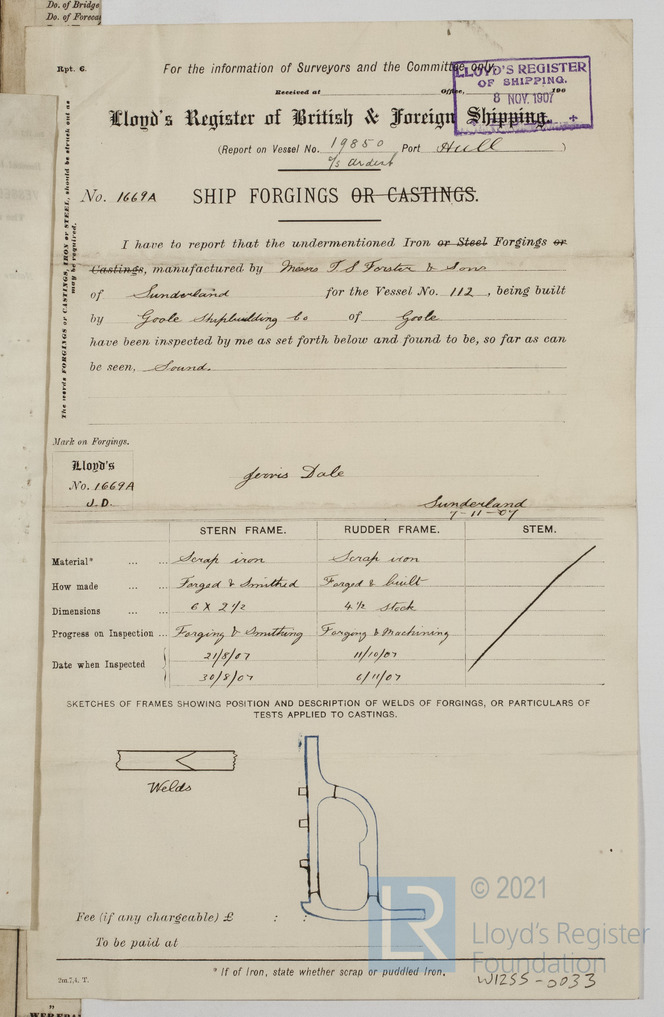 Do. of Bridge
Do. of Foreca
Rpt. 6.
For the information of Surveyors and the Committee only.
LLOYD'S REGISTER
OF SHIPPING.
8 NOV. 1907
Received at Office, 190
Lloyd's Register of British & Foreign Shipping.
(Report on Vessel No. 19850 Port Hull )
s/s Ardent
No. 1669A SHIP FORGINGS OR CASTINGS.
The words FORGINGS or CASTINGS, IRON or STEEL, should be struck out as
may be required.
I have to report that the undermentioned Iron or Steel Forgings or
Castings, manufactured by Messrs T. S Forster & Sons
of Sunderland for the Vessel No. 112, being built
by Goole Shipbuilding Co of Goole
have been inspected by me as set forth below and found to be, so far as can
be seen, Sound.
Mark on Forgings.
Lloyd's
No. 1669A
J.D.
Dale
Sunderland
7-11-07
STERN FRAME. RUDDER FRAME. STEM.
Material* ... ... Scrap iron Scrap iron
How made ... ... Forged & Smithed Forged & built
Dimensions ... ... 6 x 2 1/2 4 1/2 stock
Progress on Inspection ... Forging & Smithing Forging & Machining
Date when Inspected 21/8/07 11/10/07
30/8/07 6/11/07
SKETCHES OF FRAMES SHOWING POSITION AND DESCRIPTION OF WELDS OF FORGINGS, OR PARTICULARS OF
TESTS APPLIED TO CASTINGS.
Welds
Fee (if any chargeable) £ : :
To be paid at
LR
© 2021
Lloyd's Register
Foundation
* If of Iron, state whether scrap or puddled Iron.
2m.7,4. T.
W1255-0033